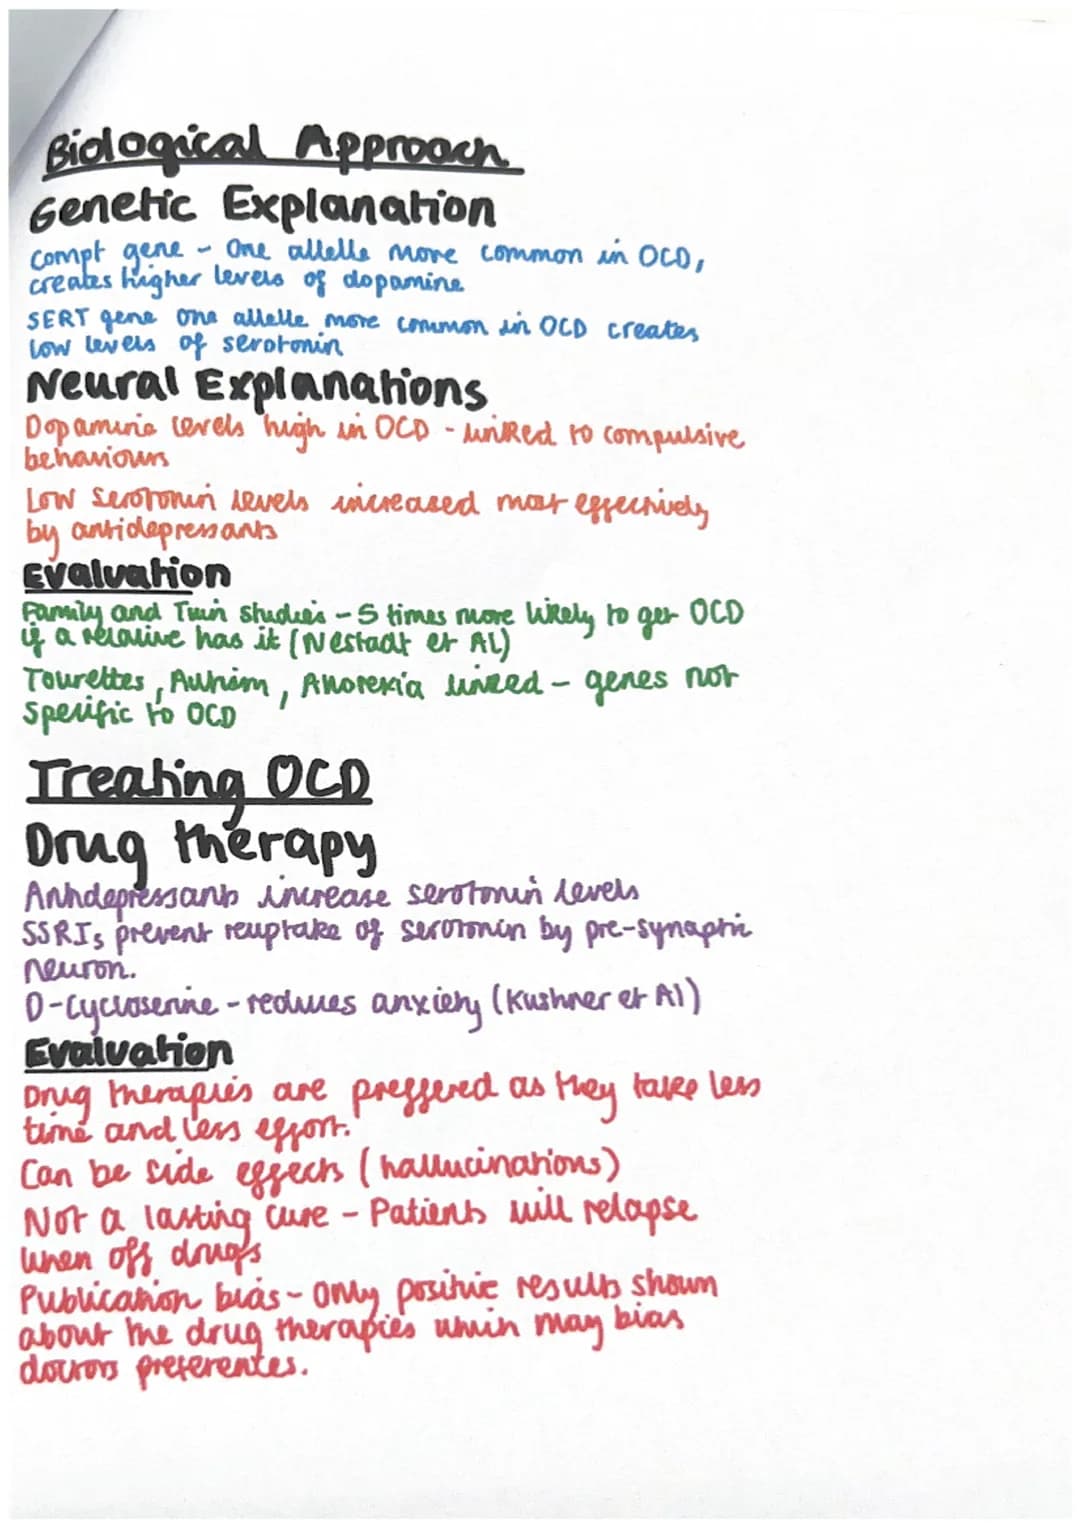 Biological Approach
Genetic Explanation
Compt gene - One allelle more common in OCD,
creates higher levels of dopamine
SERT gene one allelle more common in OCD creates
low levels of serotonin
Neural Explanations
Dopamine levels high in OCD - linked to compulsive
behaviours
Low serotonin levels increased most effectively
by antidepressants
Evaluation
Family and Twin studies - 5 times more likely to get OCD
if a relative has it (Nestadt et Al)
Tourettes, Autism, Anorexia linked - genes not
spesific to OCD
Treating OCD
Drug therapy
Antidepressants increase serotonin levels
SSRIs prevent reuptake of serotonin by pre-synaptic
neuron.
D-Cycloserine - reduces anxiety (Kushner et Al)
Evaluation
Drug therapies are preffered as they take less
time and less effort.
Can be side effects (hallucinations)
Not a lasting cure - Patients will relapse
when off drugs
Publication bias - Only positive results shown
about the drug therapies which may bias
doctors preferentes.